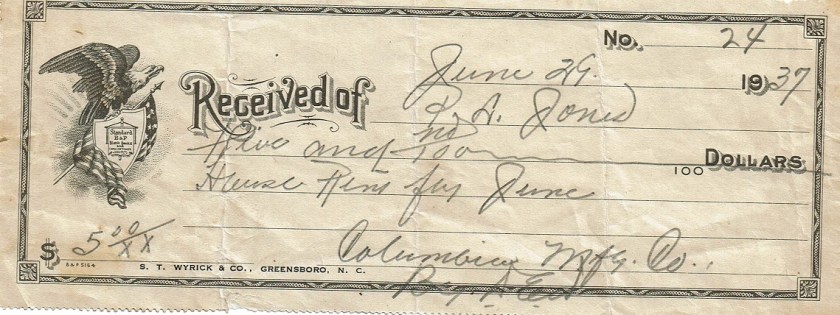 No. 24
June 29. 1937
Received of R. A. Jones
Five and no/100 DOLLARS
100
House Rent for June
$ 5 00/XX
Columbia Mfg. Co.,
S. T. WYRICK & CO., GREENSBORO, N. C.
By
Standard
B & P